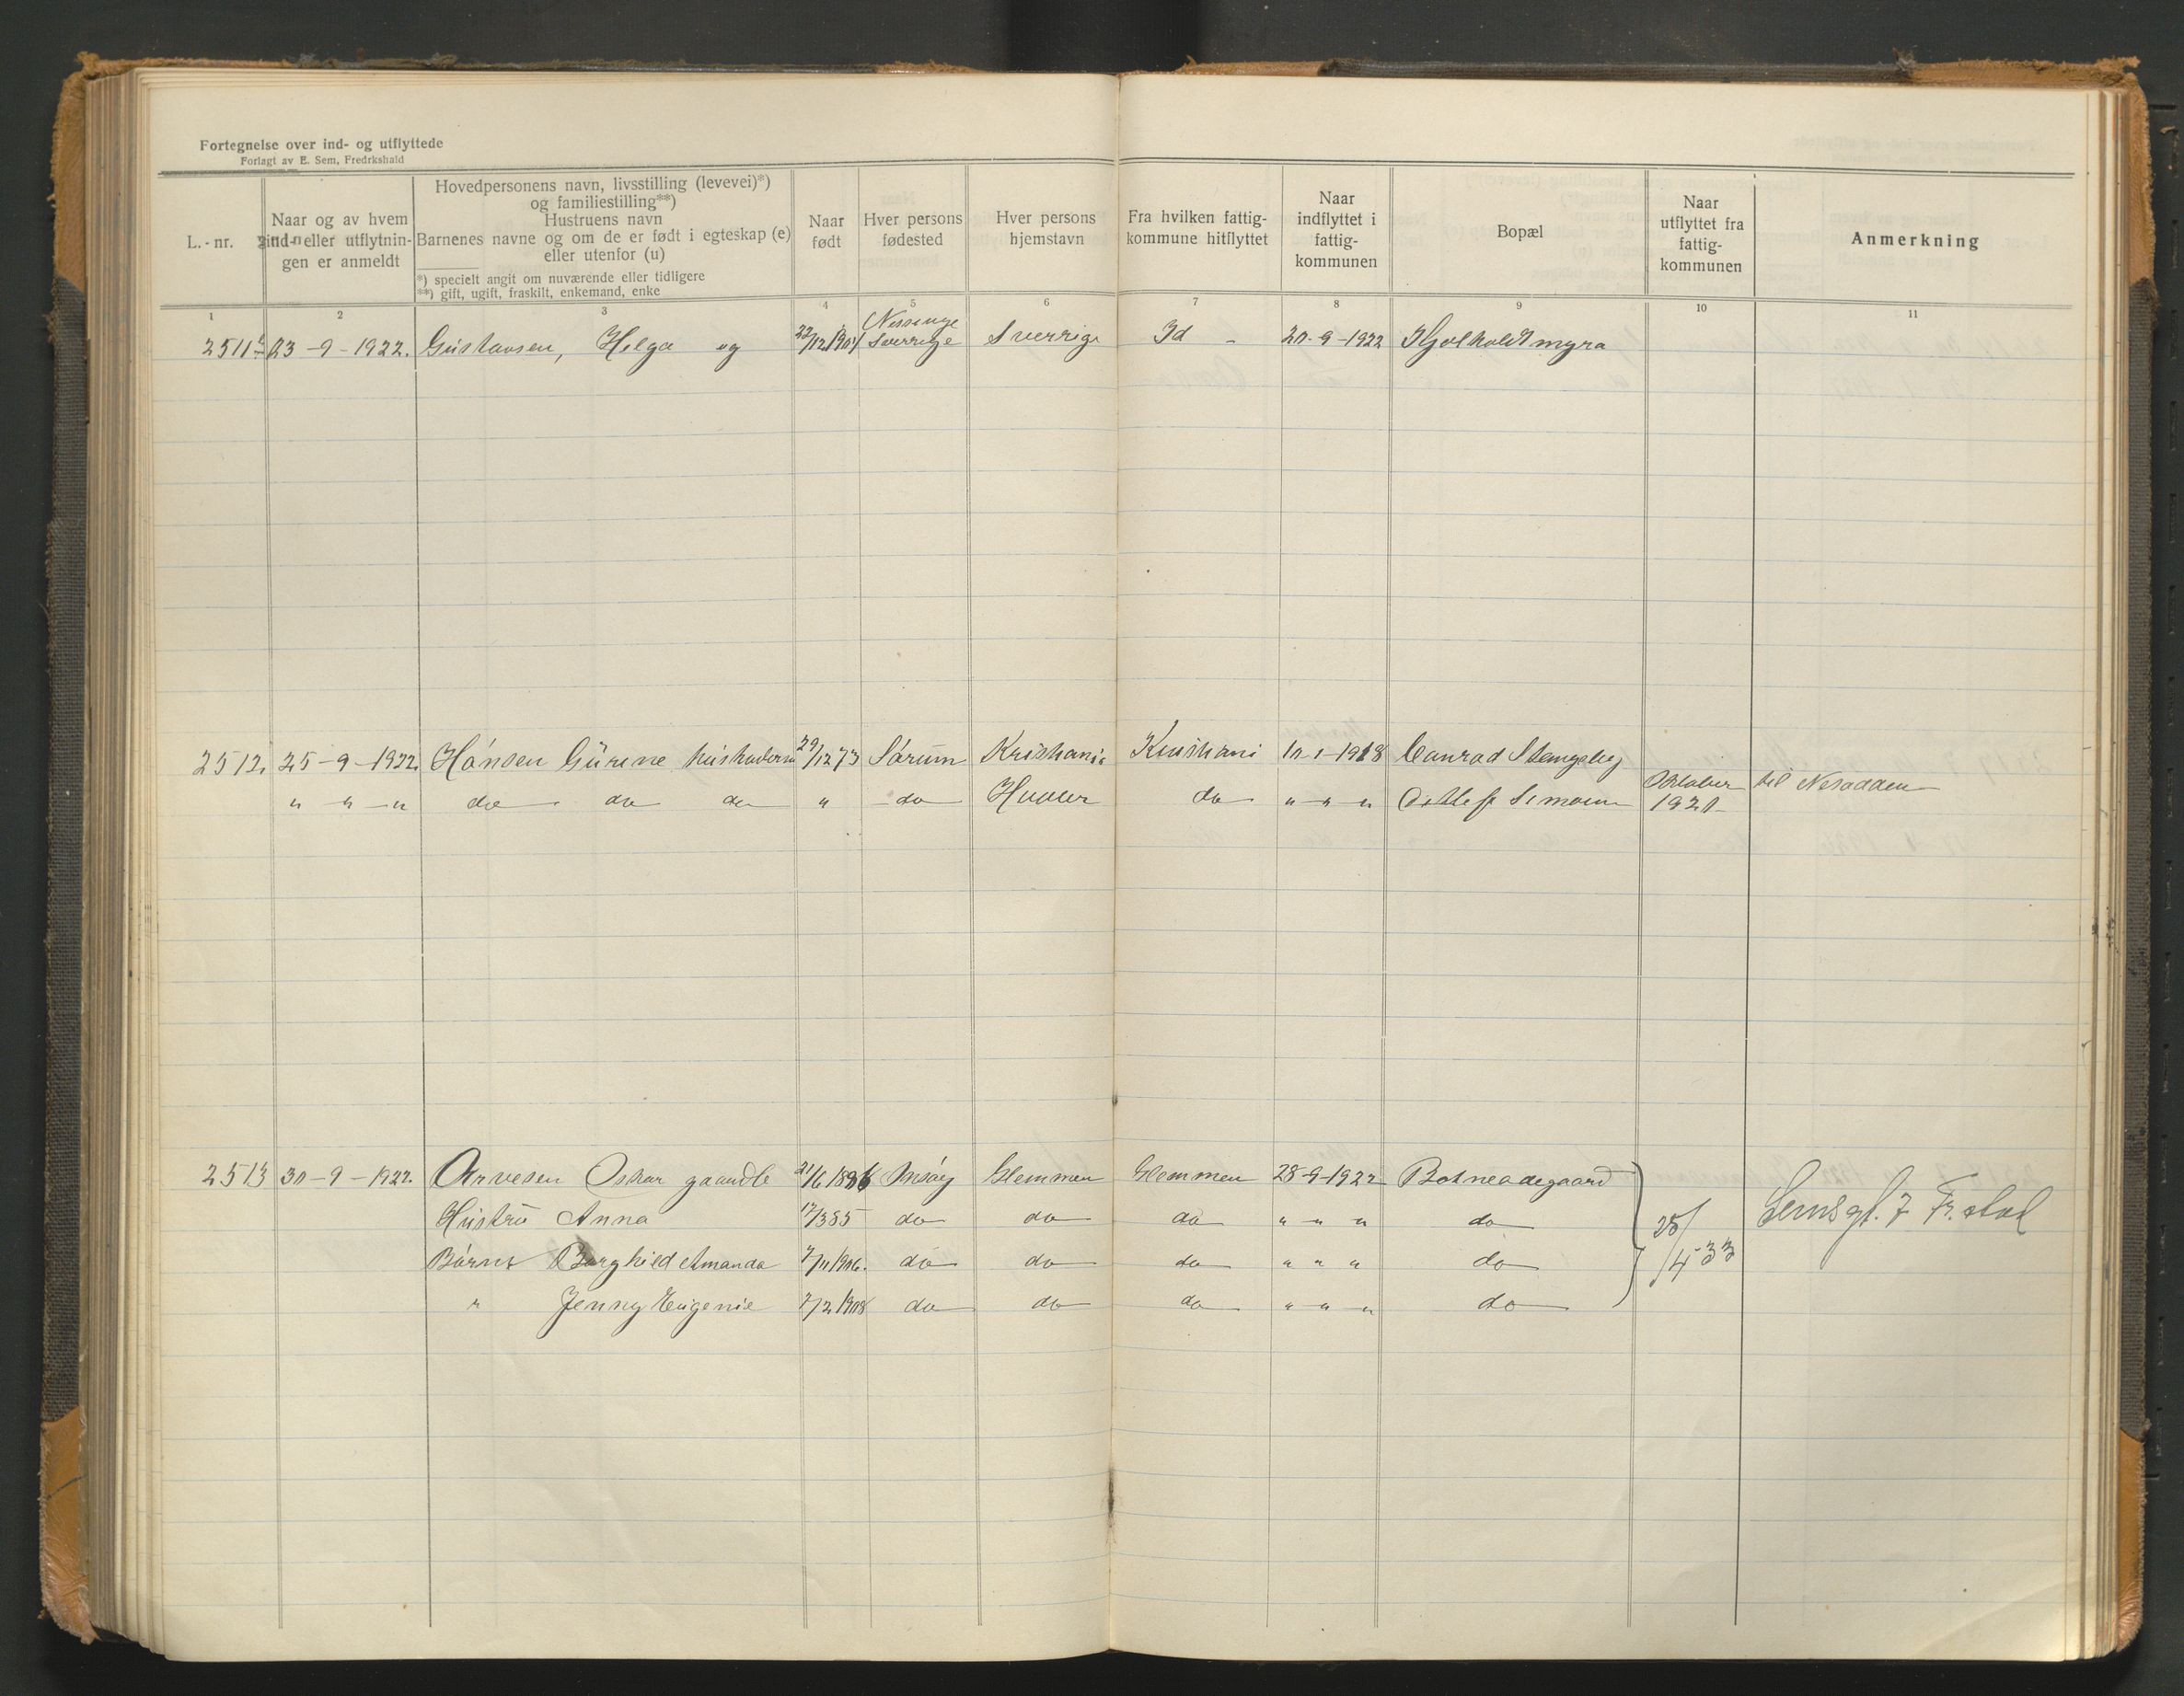 Fortegnelse over ind- og utflyttede
Forlagt av E. Sem, Fredrkshald
L.-nr.
Naar og av hvem
ind- eller utflytnin-
gen er anmeldt
Hovedpersonens navn, livsstilling (levevei)*)
og familiestilling**)
Hustruens navn
Barnenes navne og om de er født i egteskap (e)
eller utenfor (u)
*) specielt angit om nuværende eller tidligere
**) gift, ugift, fraskilt, enkemand, enke
Naar
født
Hver persons
fødested
Hver persons
hjemstavn
Fra hvilken fattig-
kommune hitflyttet
Naar
indflyttet i
fattig-
kommunen
Bopæl
Naar
utflyttet fra
fattig-
kommunen
Anmerkning
1 2 3 4 5 6 7 8 9 10 11
2511 23-9-1922. Gustavsen, Helga ug 22/12 1901 Sverrige Sverrige Id - 20-9-1922
2512. 25-9-1922. Hansen Gurine 29/12 73 Sørum Kristiania Kristiani 10-1-1918 Conrad Stengelsy
" " - " do do do " do Hvaler do " - " Simoen Oktober 1920 til Nesodden
2513 30-9-1922. Arvesen Oskar gaardb 21/6 1886 Onsøy Glemmen Glemmen 28-9-1922 Botneadegaard
Hustru Anna 17/3 85 do do do " " " do 25/4-33 Semsgt. 7 Fr.stad
Børns Borghild Amanda 7/11 1906. do do do " " " do
" Jenny Eugenie 7/2 1908 do do do " " " do